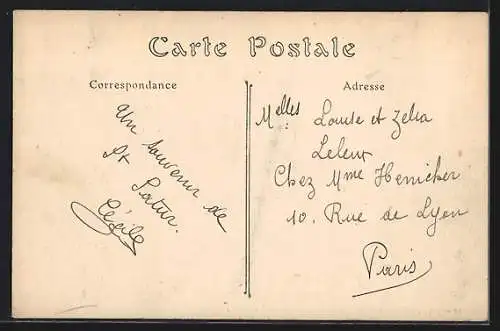 Carte Postale
Correspondance
Un souvenir de
St Satur.
Cécile
Adresse
Melles: Louise et Zélia
Leleux
Chez Mme Henicker
10. Rue de Lyon
Paris